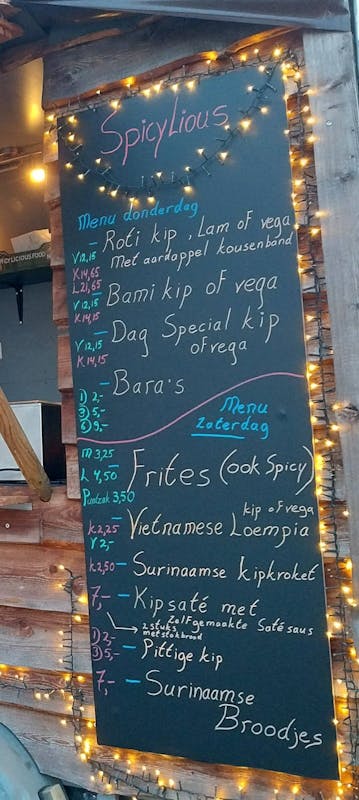 SpicyLious
Menu donderdag
– Roti kip, Lam of vega
V 12,15 met aardappel kousenband
K 14,65
L 21,65
– Bami kip of vega
V 12,15
K 14,15
– Dag Special kip
V 12,15 of vega
K 14,15
– Bara's
① 2,-
③ 5,-
⑥ 9,-
Menu
Zaterdag
M 3,25
L 4,50 – Frites (ook Spicy)
Puntzak 3,50
kip of vega
K 2,25 – Vietnamese Loempia
V 2,-
K 2,50 – Surinaamse kipkroket
7,- – Kipsaté met
Zelfgemaakte Saté saus
2 stuks
met stokbrood
① 2,-
③ 5,- – Pittige kip
7,- – Surinaamse
Broodjes